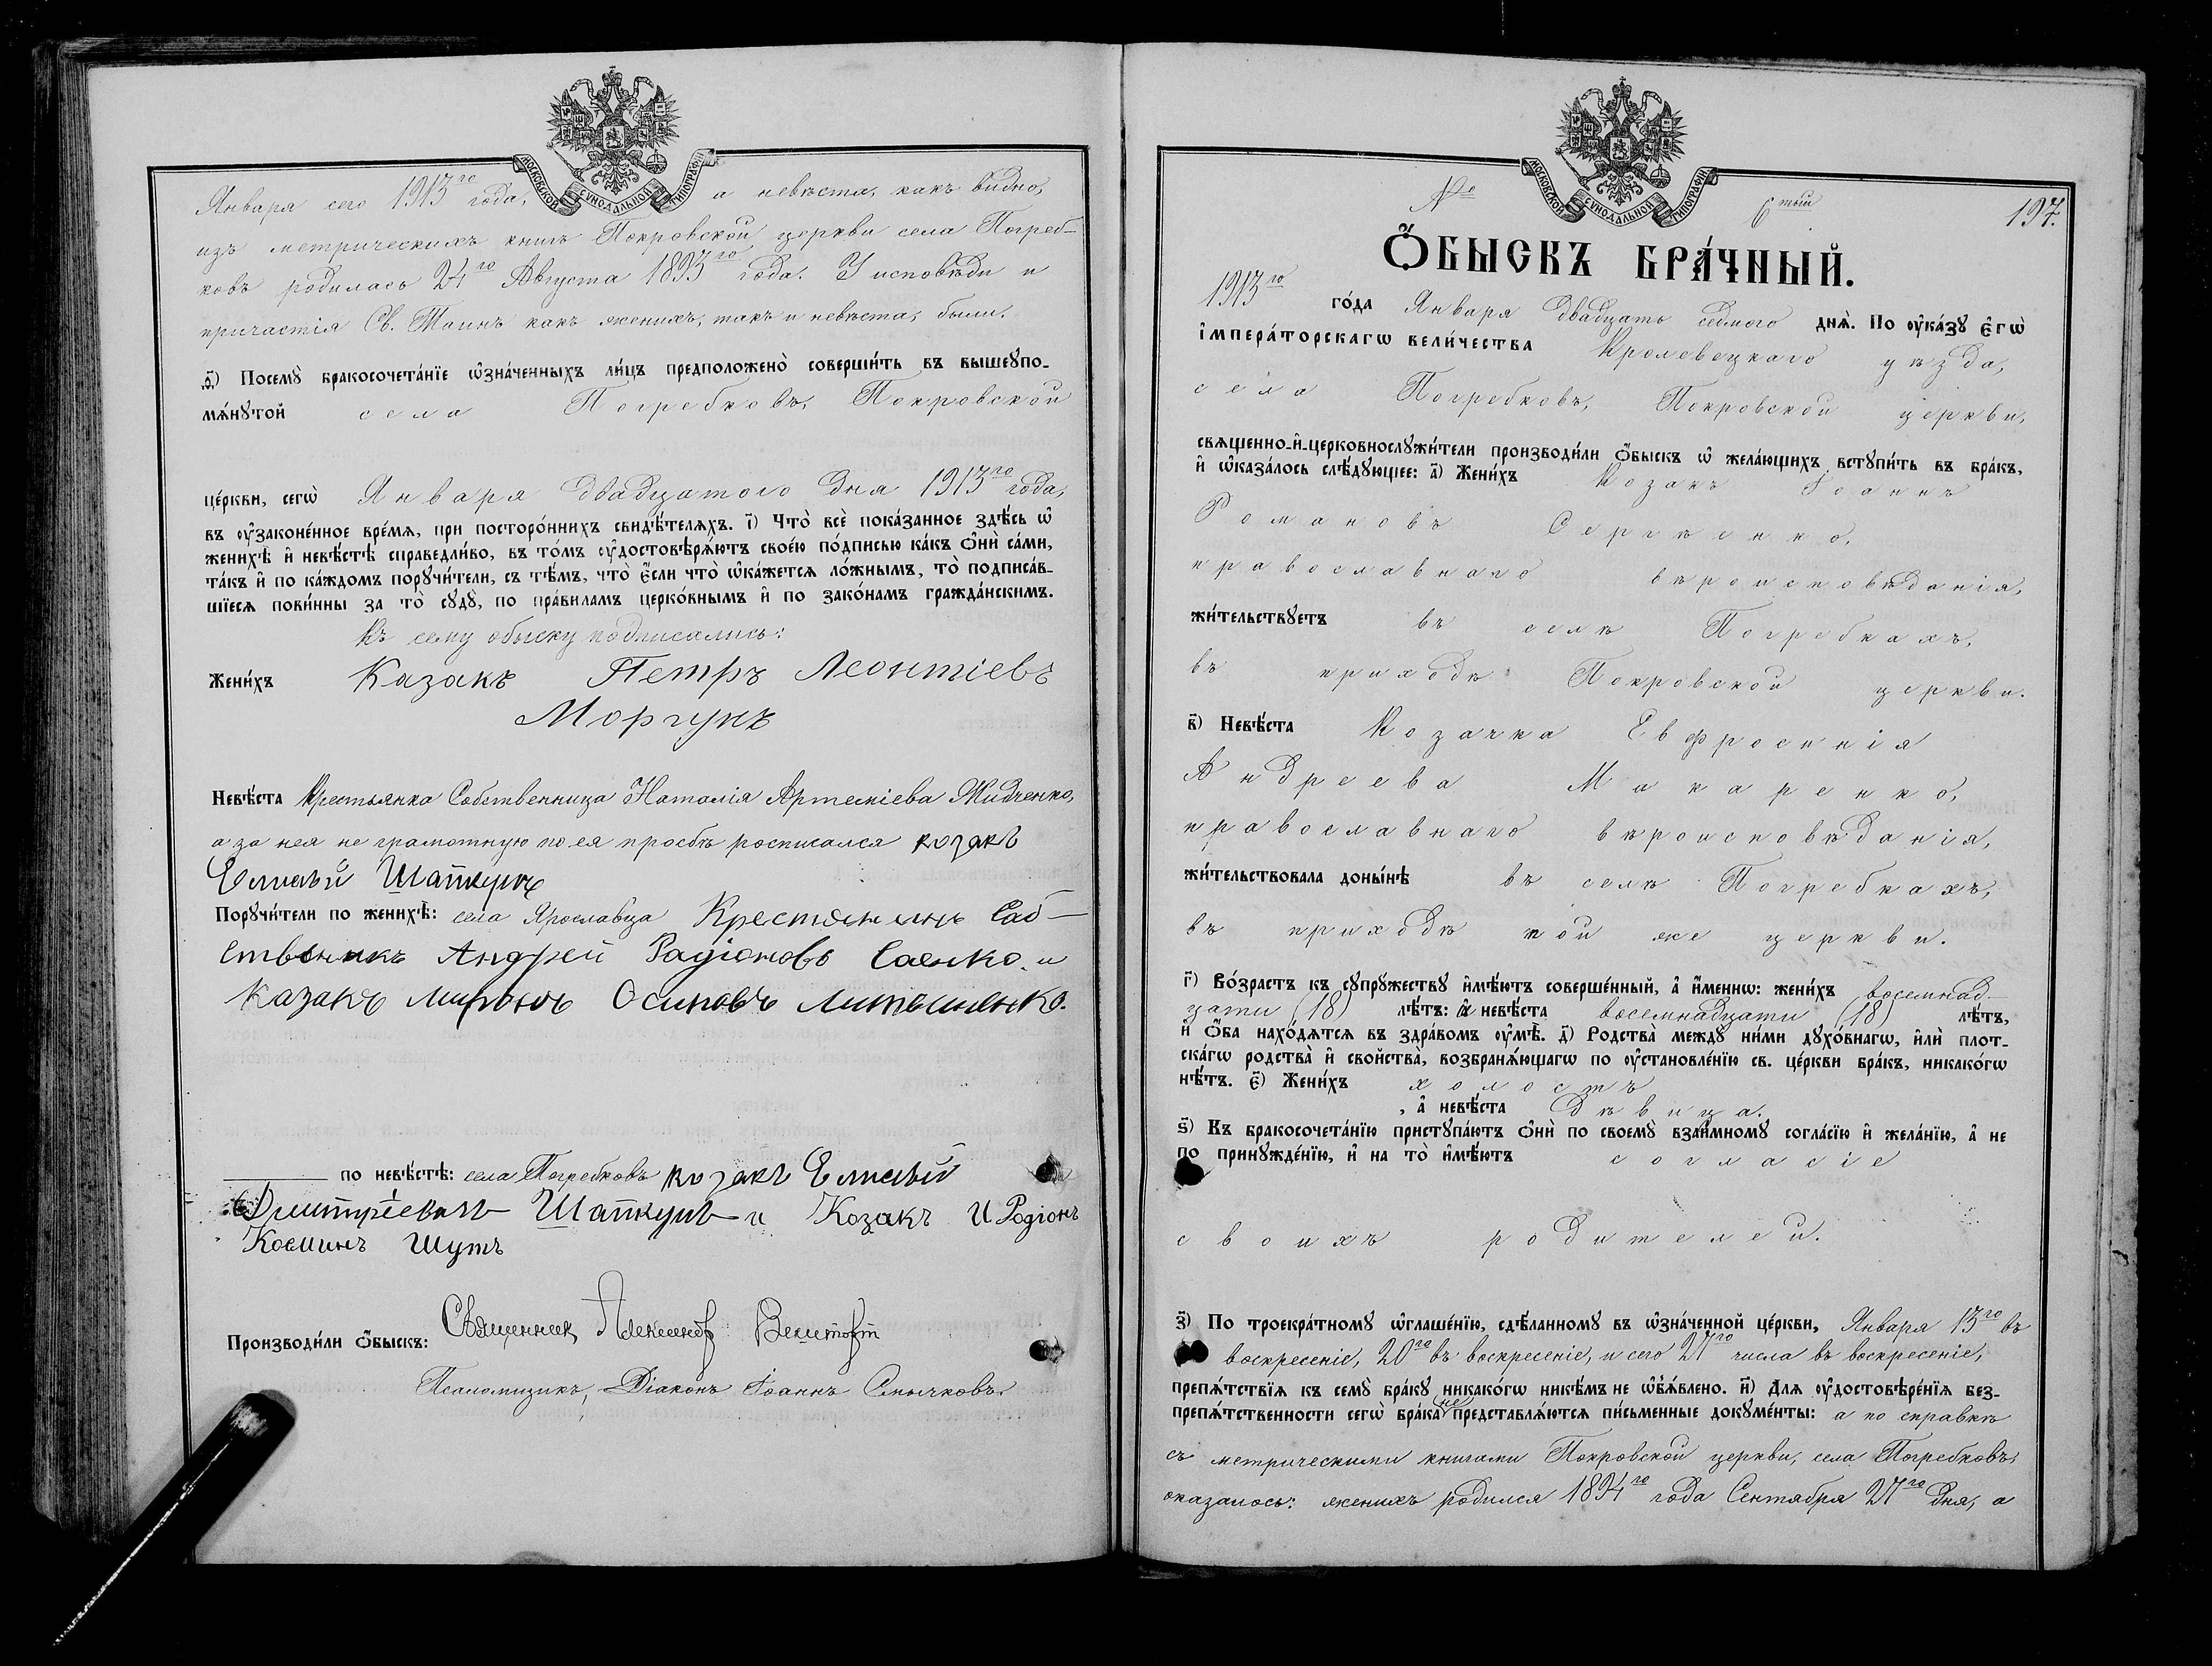 МОСКОВСКОЙ СѴНОДАЛЬНОЙ ТИПОГРАФІИ
Января сего 1913го года, а невѣста, какъ видно,
изъ метрическихъ книгъ Покровской церкви села Погреб-
ковъ родилась 24го Августа 1893го года. У исповѣди и
причастія Св. Таинъ какъ женихъ, такъ и невѣста, были.
ѳ҃) Посемꙋ̀ бракосочета́нїе ѡ҆зна́ченныхъ ли́цъ предположено̀ соверши́ть въ вышеꙋпо-
мѧ́нꙋтой села Погребковъ, Покровской
це́ркви, сегѡ̀ Января двадцатого дня 1913го года,
въ ᲂу҆зако́ненное вре́мѧ, при посторо́ннихъ свидѣ́телѧхъ. і҃) Что̀ всѐ пока́занное здѣ́сь ѡ҆
женихѣ̀ и҆ невѣ́стѣ справедли́во, въ то́мъ ᲂу҆достовѣрѧ́ютъ свое́ю по́дписью ка́къ ѻ҆нѝ са́ми,
та́къ и҆ по ка́ждомъ порꙋчи́тели, съ тѣ́мъ, что̀ є҆́сли что̀ ѡ҆ка́жетсѧ ло́жнымъ, то̀ подписа́в-
шїесѧ пови́нны за то̀ сꙋдꙋ̀, по пра́виламъ церко́внымъ и҆ по зако́намъ гражда́нскимъ.
Къ сему обыску подписались:
Жени́хъ Казакъ Петръ Леонтіевъ
Моргунъ
Невѣ́ста Крестьянка Собственница Наталія Артеміева Жидченко,
а за нея не грамотную по ея просьбѣ росписался козакъ
Елисѣй Шапкунъ
Порꙋчи́тели по женихѣ̀: села Ярославца Крестянинъ Саб-
ственикъ Андрей Радіоновъ Саенко. и
Казакъ Миронъ Осиповъ Литвиненко.
по невѣ́стѣ: села Погребковъ козакъ Елисѣй
Дмитріевичъ Шапкунъ и Козакъ И Родіонъ
Косминъ Шутъ
Производи́ли ѻ҆́быскъ: Священник
Псаломщикъ, Діаконъ Іоаннъ Смычковъ.
МОСКОВСКОЙ СѴНОДАЛЬНОЙ ТИПОГРАФІИ
№ 6тый 197.
Ѻ҆́БЫСКЪ БРА́ЧНЫЙ.
1913го го́да Января двадцать седмого днѧ̀. По ᲂу҆ка́зꙋ є҆гѡ̀
і҆мпера́торскагѡ вели́чества Кролевецкаго уѣзда,
села Погребковъ, Покровской церкви,
свѧщенно-и҆-церковнослꙋжи́тели производи́ли ѻ҆́быскъ ѡ҆ жела́ющихъ встꙋпи́ть въ бра́къ,
и҆ ѡ҆каза́лось слѣ́дꙋющее: а҃) Жени́хъ Козакъ Іоаннъ
Романовъ Сергѣенко,
православнаго вѣроисповѣданія,
жи́тельствꙋетъ въ селѣ Погребкахъ,
въ приходѣ Покровской церкви.
в҃) Невѣ́ста Козачка Евфросинія
Андреева Макаренко,
православнаго вѣроисповѣданія,
жи́тельствовала доны́нѣ въ селѣ Погребкахъ,
въ приходѣ той же церкви.
г҃) Во́зрастъ къ сꙋпрꙋ́жествꙋ и҆мѣ́ютъ соверше́нный, а҆ и҆́меннѡ: жени́хъ восемнад-
цати (18) лѣ́тъ: а҆ невѣ́ста восемнадцати (18) лѣ́тъ,
и҆ ѻ҆́ба нахо́дѧтсѧ въ здра́вомъ ᲂу҆мѣ̀. д҃) Родства̀ междꙋ ни́ми дꙋхо́внагѡ, и҆лѝ плот-
ска́гѡ родства̀ и҆ сво́йства̀, возбранѧ́ющагѡ по ᲂу҆становле́нїю св. це́ркви бра́къ, никако́гѡ
нѣ́тъ. є҃) Жени́хъ холостъ
, а҆ невѣ́ста дѣвица.
ѕ҃) Къ бракосочета́нїю пристꙋпа́ютъ ѻ҆нѝ по своемꙋ̀ взаи́мномꙋ согла́сїю и҆ жела́нїю, а҆ не
по принꙋжде́нїю, и҆ на то̀ и҆мѣ́ютъ согласіе
своихъ родителей.
з҃) По троекра́тномꙋ ѡ҆глаше́нїю, сдѣ́ланномꙋ въ ѡ҆зна́ченной це́ркви, Января 13го въ
воскресеніе, 20го въ воскресеніе, и сего 27го числа въ воскресеніе,
препѧ́тствїѧ къ семꙋ̀ бра́кꙋ никако́гѡ никѣ́мъ не ѡ҆бъѧ́влено. и҃) Длѧ ᲂу҆достовѣре́нїѧ без-
препѧ́тственности сегѡ̀ бра́ка не представлѧ́ютсѧ пи́сьменные докꙋме́нты: а по справкѣ
съ метрическими книгами Покровской церкви, села Погребковъ,
оказалось: женихъ родился 1894го года Сентября 27го дня, а